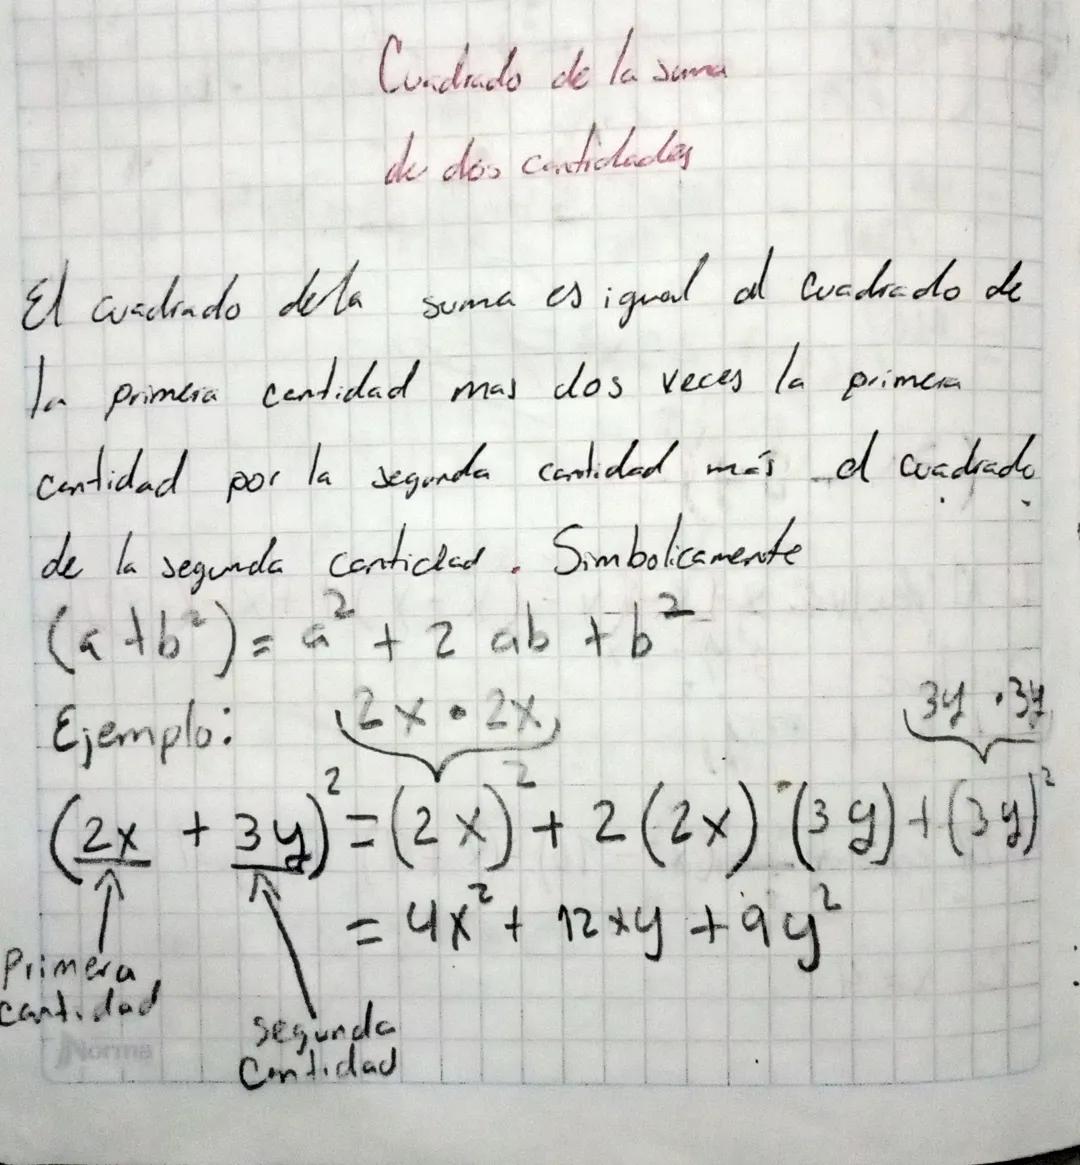 Cuadrado de la suma
de dos cantidades
El cuadrado de la suma es igual al cuadrado de
la primera cantidad mas dos veces la primera
cantidad por la segunda cantidad más el cuadrado
de la segunda cantidad. Simbolicamente
(a+b²)=a²+2ab+b²
Ejemplo: 2x•2x 3y•3y
(2x+3y)²=(2x)²+2(2x)(3y)+(3y)²
=4x²+12xy+9y²
Primera
cantidad
segunda
Cantidad
Norma